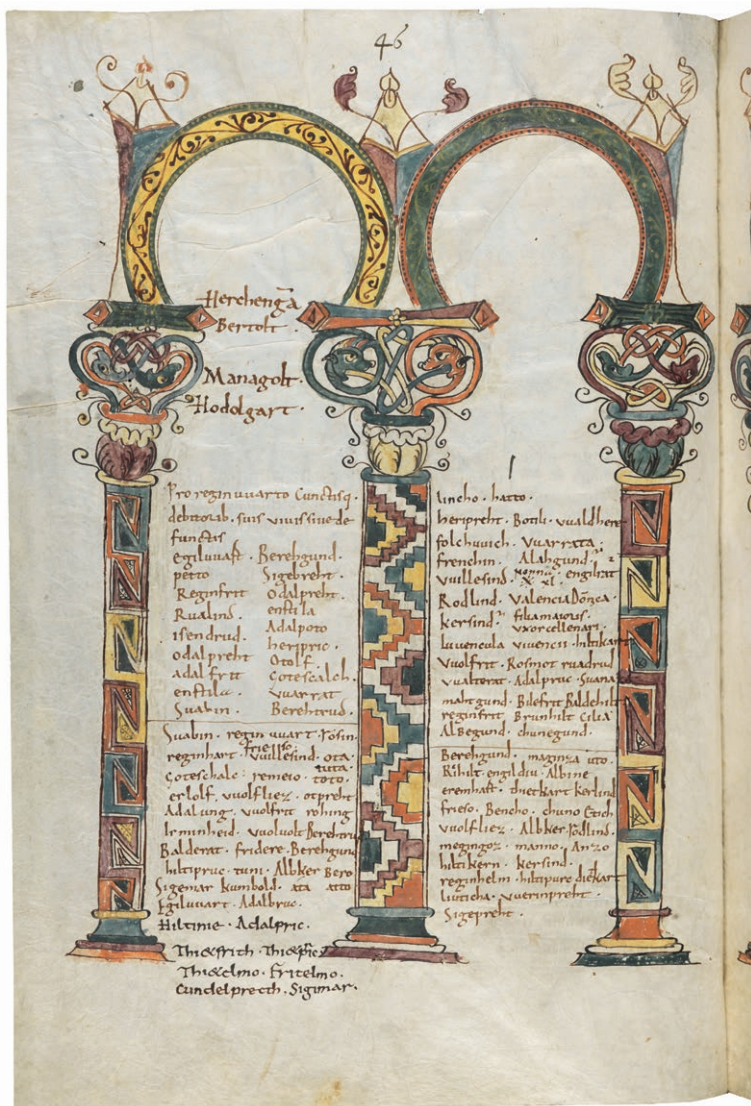 46
Herchenga
Bertolt ·
Managolt ·
Hodolgart ·
Pro reginuuarto Cunctisq.
debitorib. suis uiuis siue de
functis
egiluuast · Berehgund ·
petto Sigebreht ·
Reginfrit odalpreht ·
Rualind · enstila
isendrud · Adalpoto
odalpreht heripric ·
adalfrit Otolf ·
enstila · Gotescalch ·
Suabin · uuarrat ·
Berehtrud ·
Suabin · regin uuart · Rosin
reginhart · uuillesind · ota ·
Goteschalc · remeio · toto ·
erlolf · uuolfliez · otpreht
Adalung · uuolfrit rohing
Irminheid · uuoluolt Berehtru
Balderat · fridere · Berehgund
hiltipruc · tuni · Albker Bero
Sigemar kumbold · ata atto
Egiluuart · Adalbruc ·
Hiltinie · Adalpric ·
Thi&frith · Thi&pric
Thi&elmo · Fritelmo ·
Cundelprecth · Sigimar ·
lincho · hatto ·
heripreht · Bottli · uualdhere
folchuuich · Vuarrata ·
frenchin · Alahgund
uuillesind · engilrat
Rodlind · Valencia Donea ·
kersind filiamaioris ·
uxorcellenarii ·
Iuuencula uiuencii · hiltikart
Vuolfrit · Rosmot ruadrud
uualterat · Adalpruc · Suana
mahtgund · Bilefrit Baldehilt
reginfrit · Brunhilt Cilia
Albegund · chunegund ·
Berehgund · maginza uto ·
Rihilt · engildiu · Albine
eremhaft · thietkart kerlind
frieso · Bencho · chuno Etich
uuolfliez · Albker · Rodlind ·
megingoz · manno · Anzo
hiltikern · kersind ·
reginhelm · hiltipurc dietkart
liuticha · uuerinpreht ·
Sigepreht ·